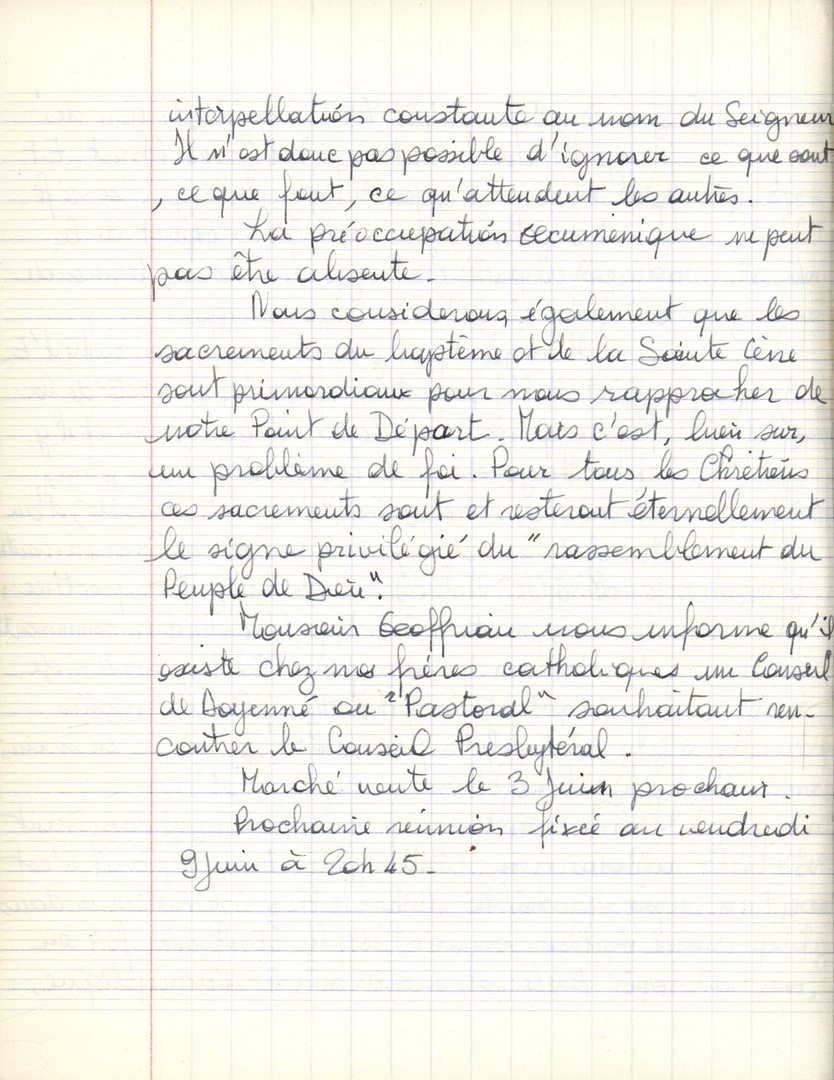 interpellation constante au nom du Seigneur
Il n'est donc pas possible d'ignorer ce que sont
, ce que font, ce qu'attendent les autres.
La préoccupation œcuménique ne peut
pas être absente.
Nous considerons, également que les
sacrements du baptême et de la Sainte Cène
sont primordiaux pour nous rapprocher de
notre Point de Départ. Mais c'est, bien sur,
un problème de foi. Pour tous les Chrétiens
ces sacrements sont et resteront éternellement
le signe privilégié du "rassemblement du
Peuple de Dieu".
Monsieur Geoffriau nous informe qu'il
existe chez nos frères catholiques un Conseil
de Doyenné ou "Pastoral" souhaitant ren-
contrer le Conseil Presbytéral.
Marché vente le 3 Juin prochain.
Prochaine réunion fixée au vendredi
9 Juin à 20h 45.